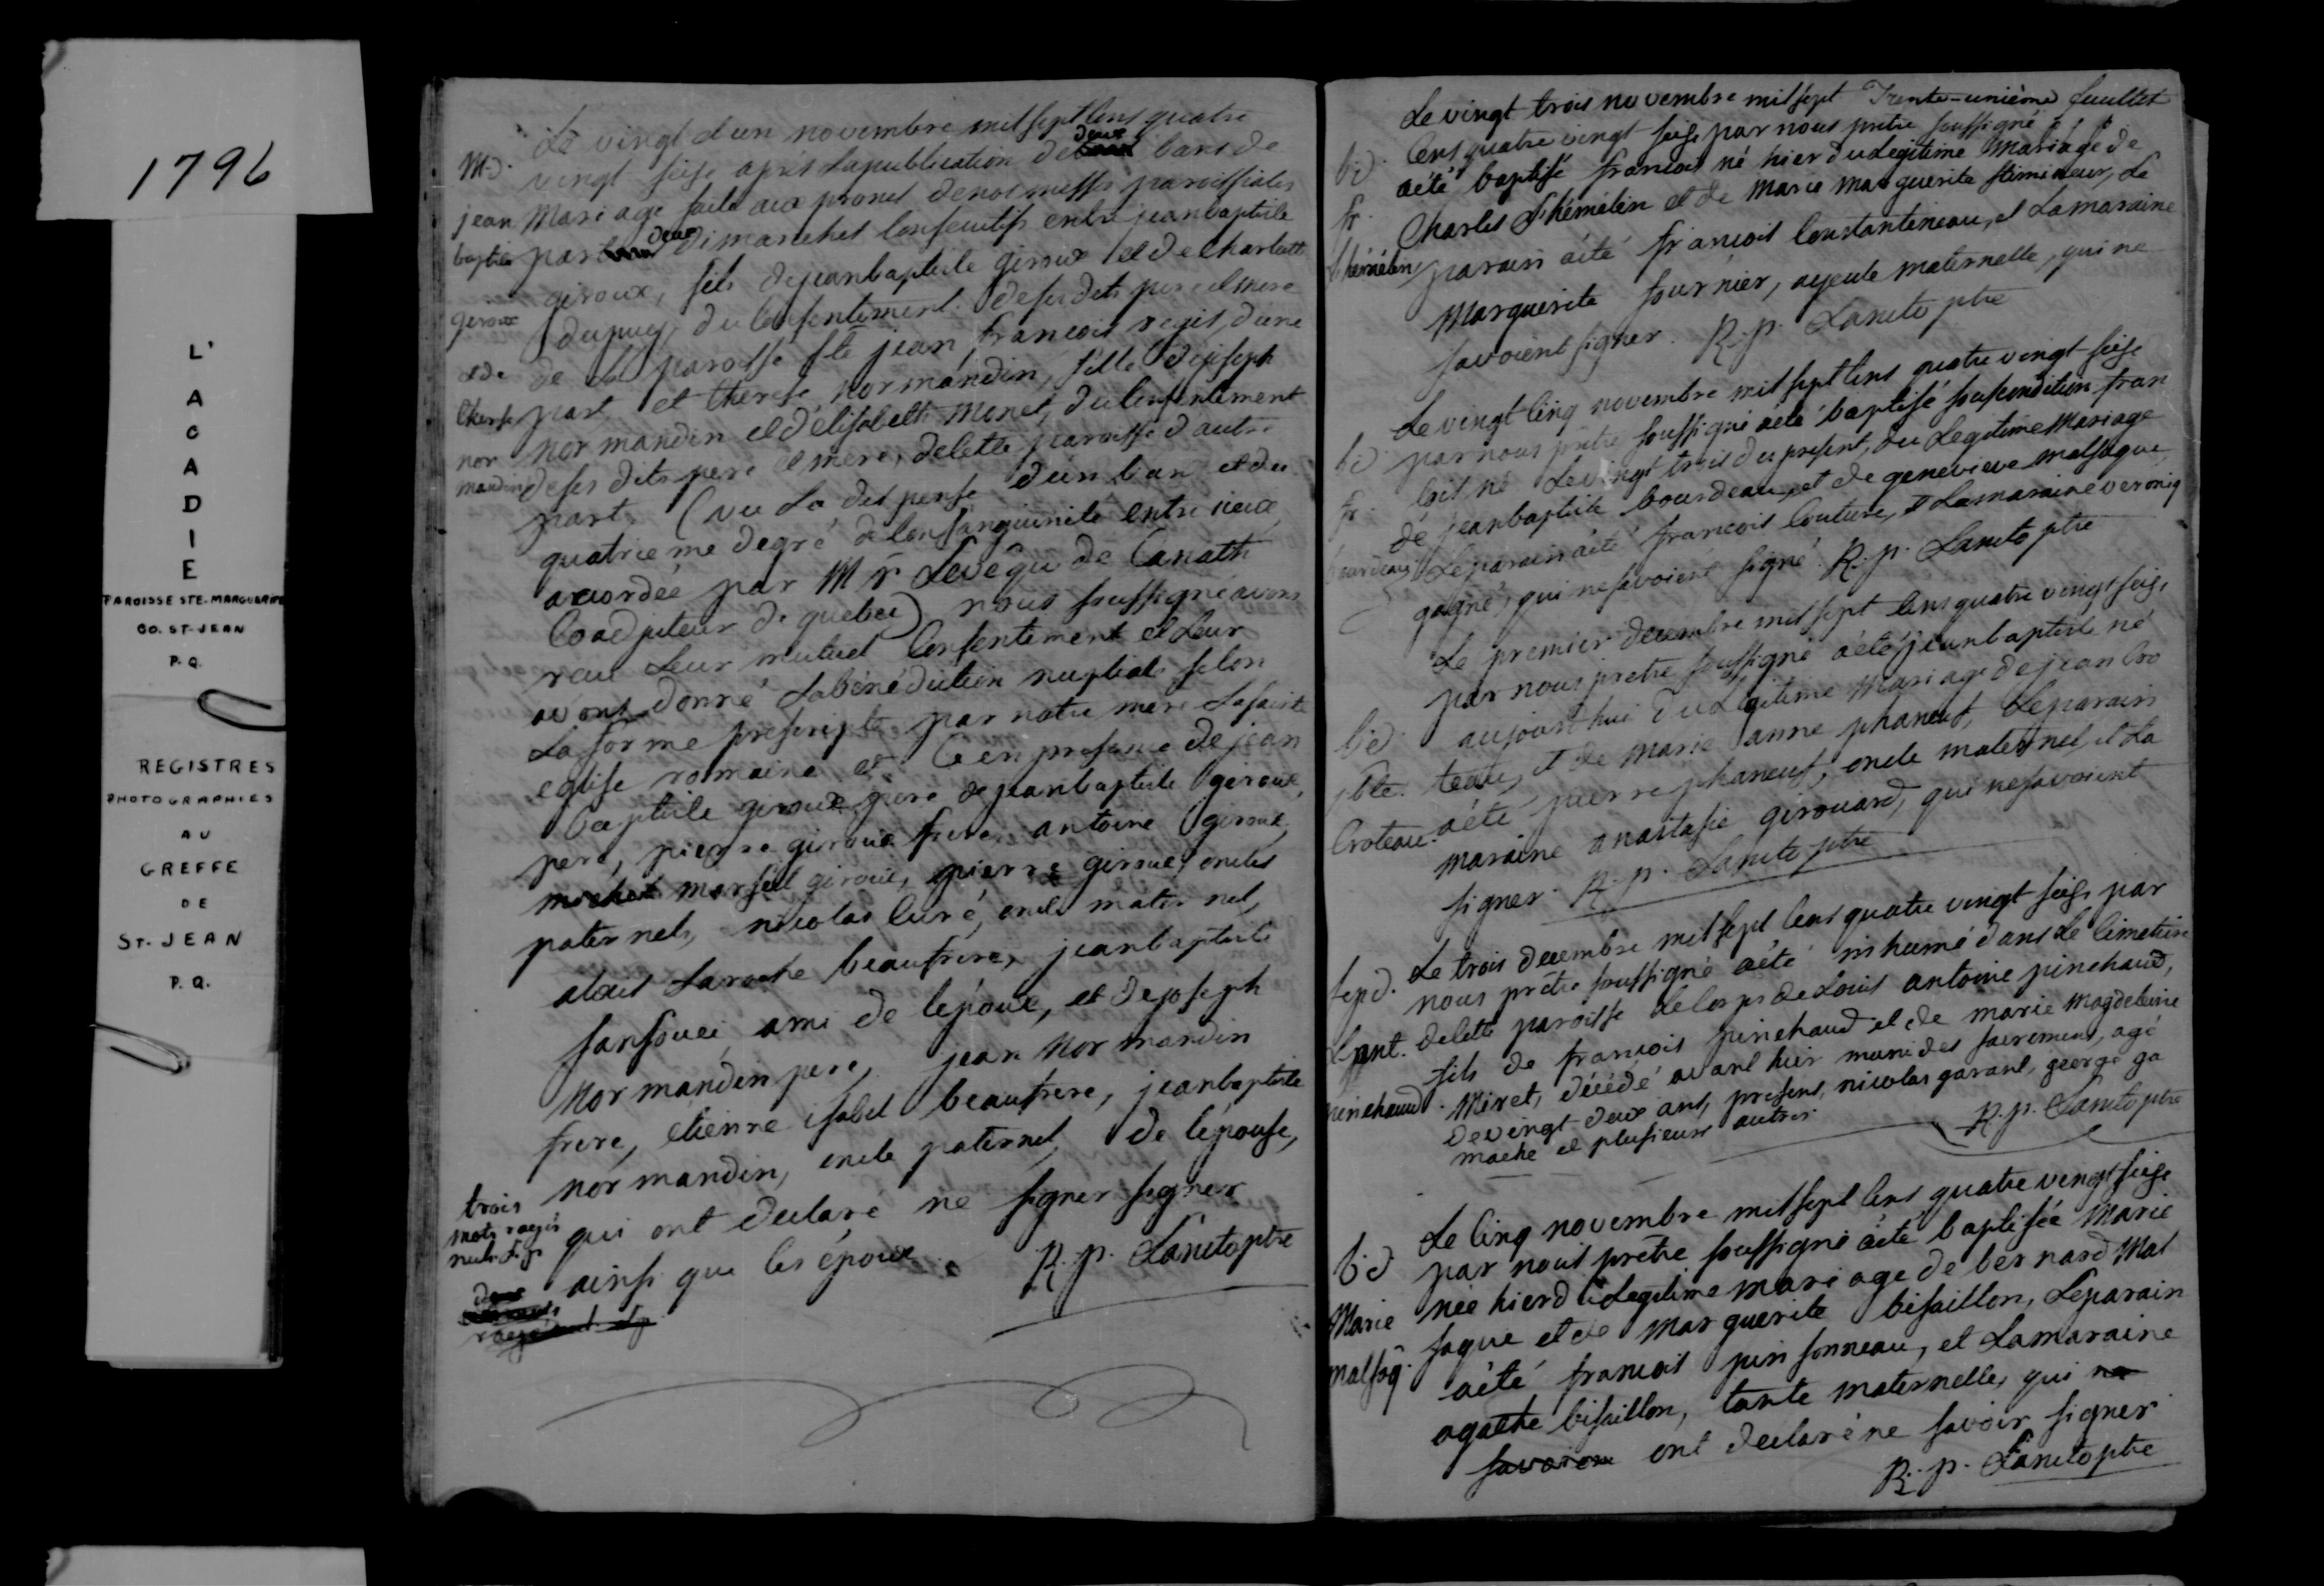 1796
L'
A
C
A
D
I
E
PAROISSE STE-MARGUERITE
CO. ST-JEAN
P.Q.
REGISTRES
PHOTOGRAPHIES
AU
GREFFE
DE
ST. JEAN
P.Q.
M.d.
jean
baptiste
geroux
et de
therese
nor
mandin
Le vingt d'un novembre mil sept cens quatre
vingt seise apres la publication de deux bans de
Mariage faite aux prones de nos messes paroissiales
par deux dimanches consecutifs entre jean baptiste
giroux, fils de jean baptiste giroux et de charlotte
dupuy, du consentement de ses dits pere et mere
de la paroisse ste jean francois regis, d'une
part et therese normandin, fille de joseph
normandin et d'elisabeth monet, du consentement
de ses dits pere et mere, de cette paroisse d'autre
part, (vu la dispense d'un ban et du
quatrieme degré de consanguinité entre ieux
accordée par Mr. L'evêque de Canath
Coadjuteur de quebec) nous soussigné avons
recu leur mutuel consentement et leur
avons donné la bénédiction nuptiale selon
la forme prescripte par notre mere la sainte
eglise romaine et ce en presence de jean
baptiste giroux pere de jean baptiste giroux,
pere, pierre giroux frere antoine giroux,
michel marsel giroux, pierre giroux oncles
paternels, nicolas curé, oncle maternel,
alexis laroche beaufrere, jean baptiste
sansouci ami de l'époux, et de joseph
normandin pere, jean normandin
frere, etienne isabel beaufrere, jean baptiste
normandin, oncle paternel de l'épouse,
qui ont declaré ne signer signer
ainsi que les époux. R.p. Lancto ptre
trois
mots rayés
nuls L.p.
deux
Trente-unième feuillet
Le vingt trois novembre mil sept
b.d.
fr.
Lhémélin
Cens quatre vingt seise par nous pretre soussigné
a été baptisé francois né hier du legitime mariage de
Charles Lhémélin et de marie marguerite stemineur, Le
parain a été francois Constantineau, et La maraine
Marguerite fournier, ayeule maternelle, qui ne
savoient signer. R.p. Lancto ptre
b.d.
fr.
bourdeau
Le vingt cinq novembre mil sept cens quatre vingt seise
par nous prêtre soussigné a été baptisé sous condition fran
cois né le vingt trois du present, du Legitime Mariage
de jean baptiste bourdeau, et de genevieve malsaque,
Le parain a été francois Couture, et La maraine veroniq
gagné, qui ne savoient signé. R.p. Lancto ptre
b.d.
j. bte.
Croteau
Le premier decembre mil sept cens quatre vingt seise
par nous pretre soussigné a été jean baptiste né
aujourd'hui du Legitime Mariage de jean Cro
teau, et de Marie anne phaneuf, Le parain
a été pierre phaneuf, oncle maternel, et La
maraine anastasie girouard, qui ne savoient
signer. R.p. Lancto ptre
sepd.
L. ant.
pinchaud
Le trois decembre mil sept cens quatre vingt seise par
nous prêtre soussigné a été inhumé dans Le Cimetiere
de cette paroisse Le corps de Louis antoine pinchaud,
fils de francois pinchaud et de marie magdeleine
Miret, décédé avant hier muni des sacremens, agé
de vingt deux ans, presens, nicolas garant, george ga
mache et plusieurs autres. R.p. Lancto ptre
b.d.
Marie
malsaq.
Le cinq novembre mil sept cens quatre vingt seise
par nous prêtre soussigné a été baptisée Marie
née hier du Legitime mariage de bernard Mal
saque et de Marguerite bisaillon, Le parain
a été francois pinsonneau, et La maraine
agathe bisaillon, tante maternelle, qui ne
savoient ont declaré ne savoir signer
R.p. Lancto ptre